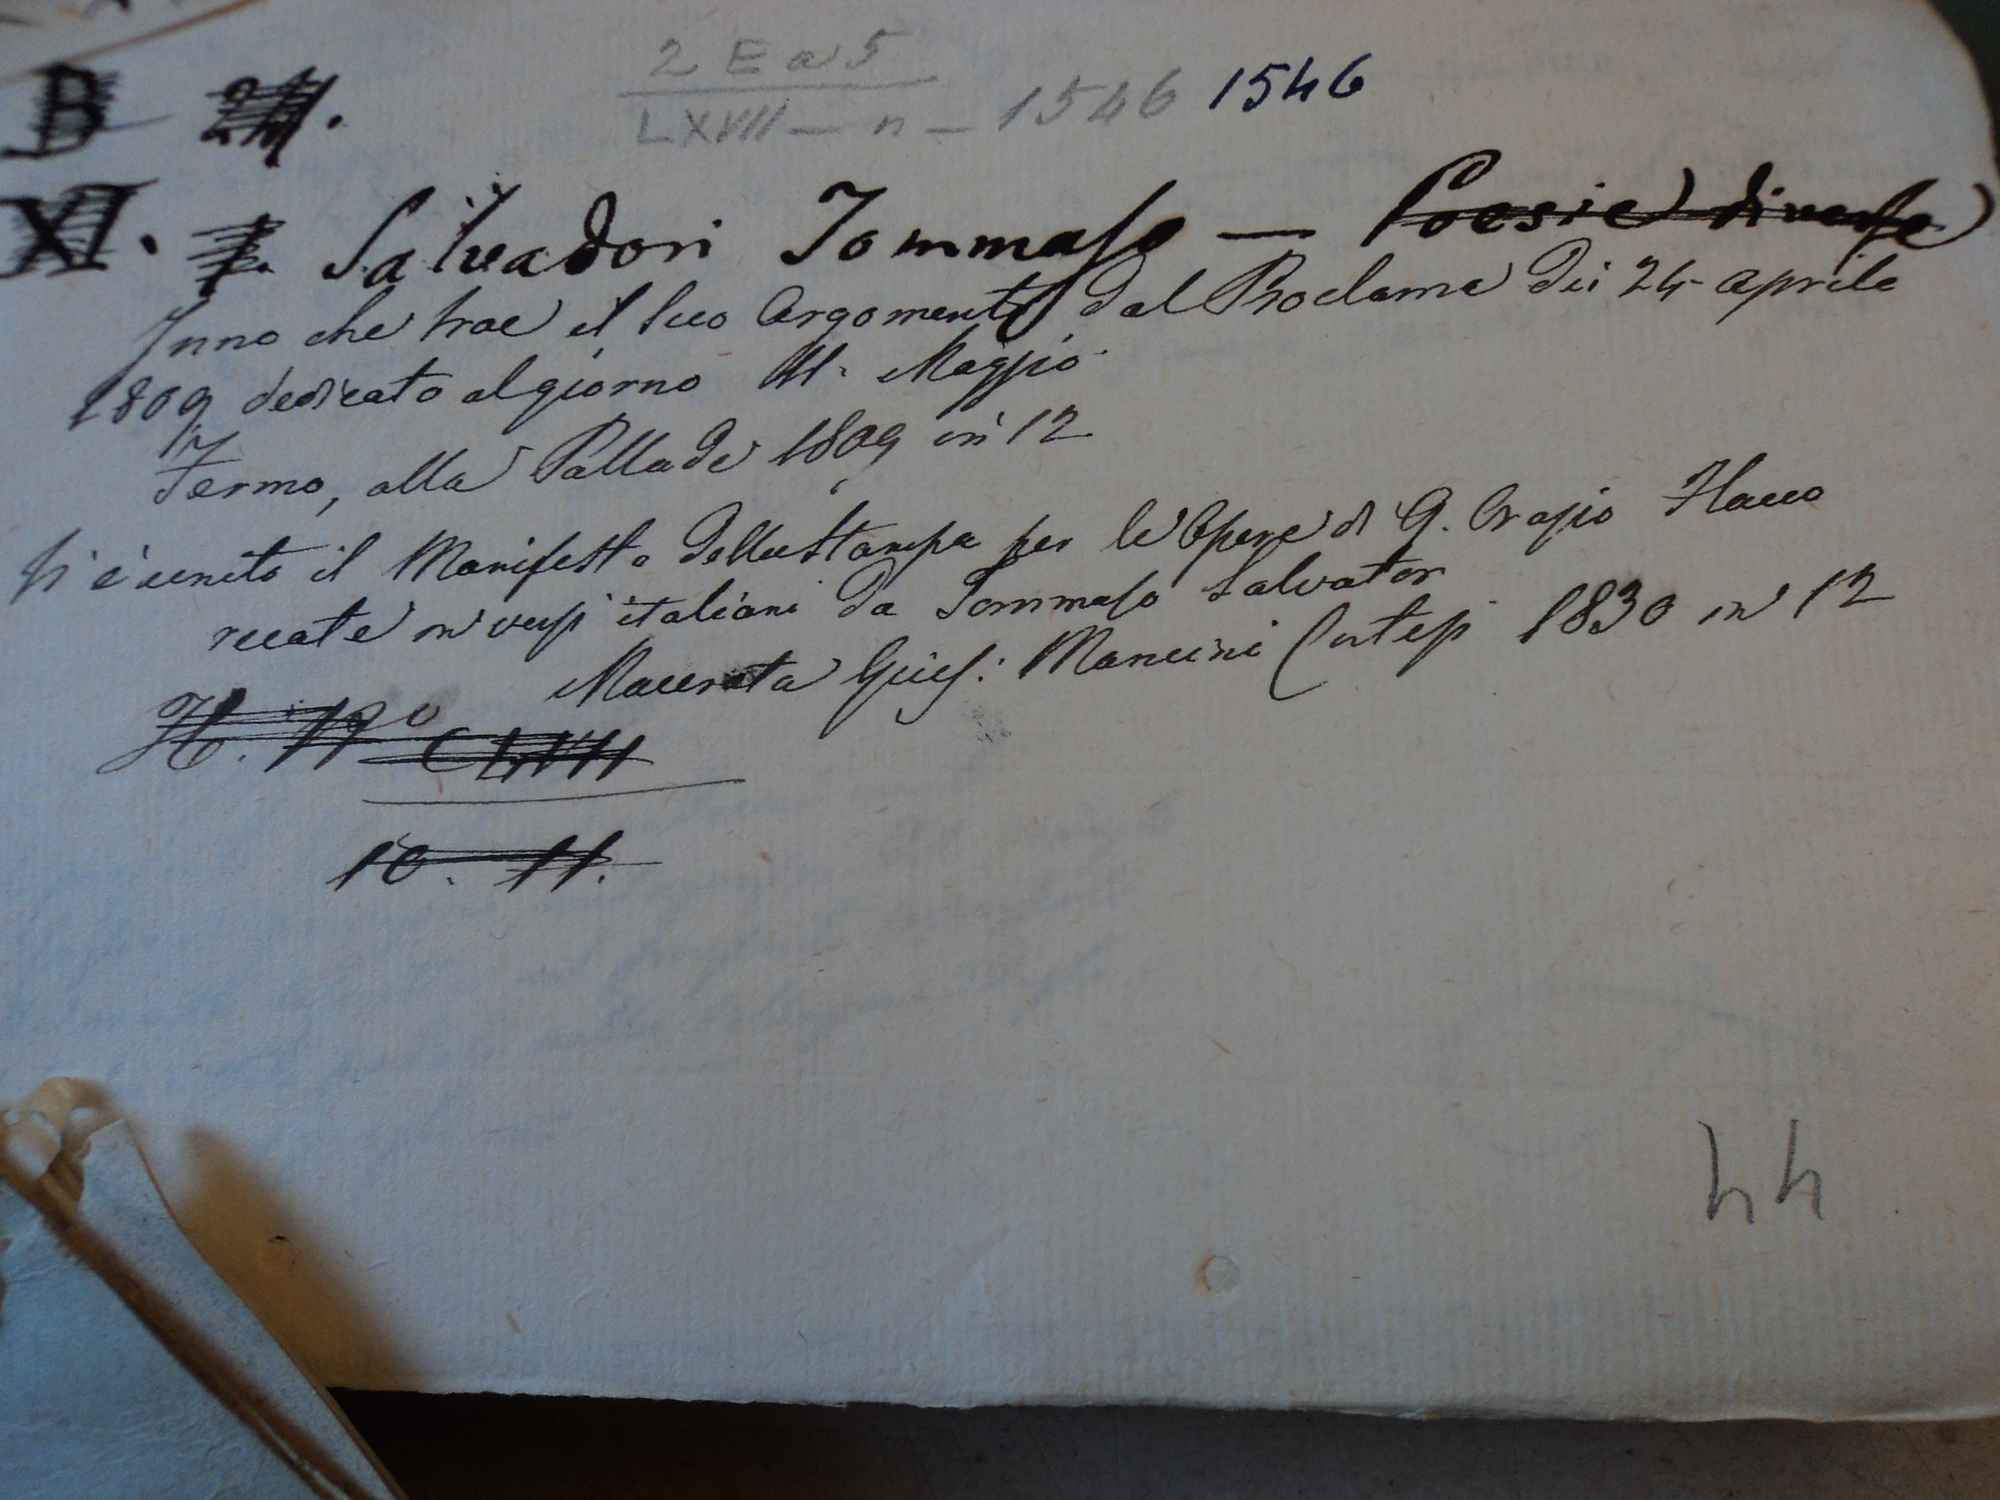 2 E a 5
LXVII - n - 1546 1546
B
XI. 1. Salvadori Tommaso — Poesie diverse
Inno che trae il suo Argomento dal Proclama dei 24 aprile
1809 dedicato al giorno Maggio
Fermo, alla Pallade 1809 in 12
Si è unito il Manifesto della Stampa per le Opere di Q. Orazio Flacco
recate in versi italiani da Tommaso Salvator
Macerata Gius: Mancini Cortesi 1830 in 12
H. 12º
10. 11.
44